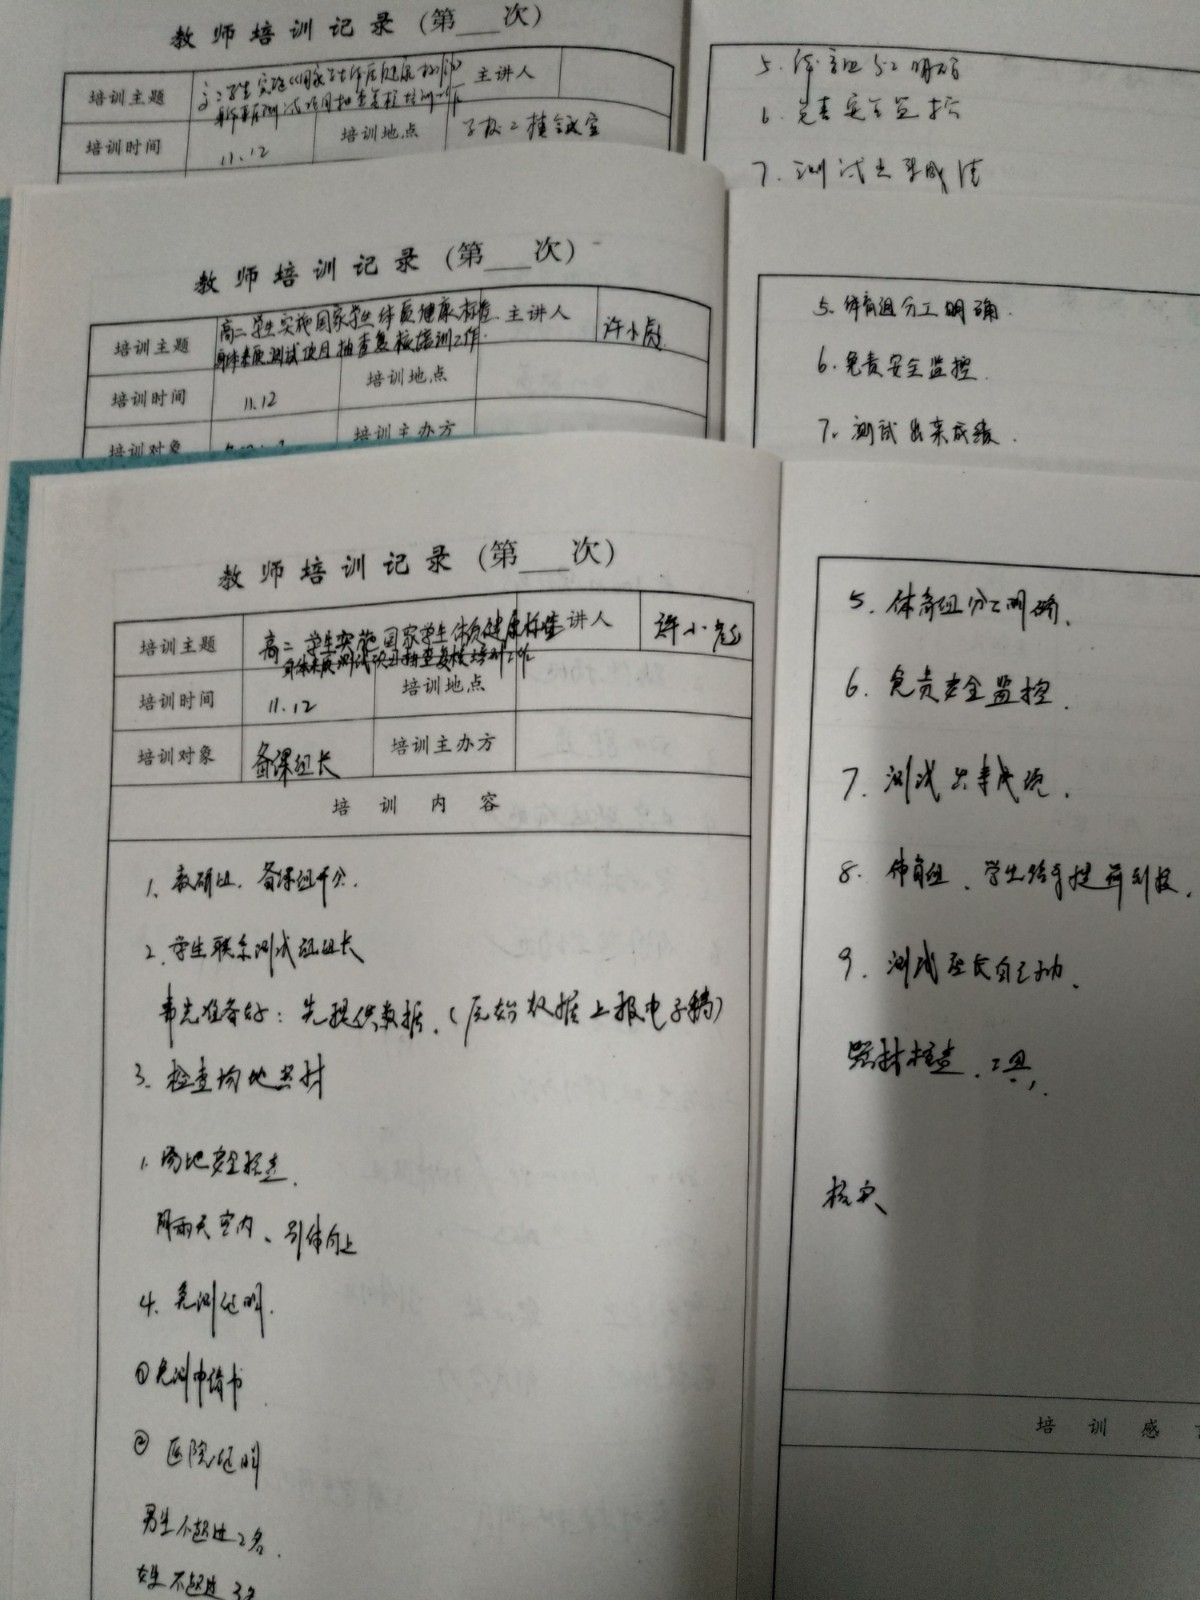 教师培训记录（第___次）
培训主题 主讲人
培训时间 11.12 培训地点
5.
6. 免责安全监控
7. 测试出来成绩
教师培训记录（第___次）
培训主题 高二学生实施国家学生体质健康标准 主讲人 许小彪
身体素质测试项目抽查复核培训工作.
培训时间 11.12 培训地点
培训对象 培训主办方
5. 体育组分工明确.
6. 免责安全监控.
7. 测试出来成绩.
教师培训记录（第___次）
培训主题 高二学生实施国家学生体质健康标准 讲人 许小彪
身体素质测试项目抽查复核培训工作
培训时间 11.12 培训地点
培训对象 备课组长 培训主办方
培训内容
1. 教研组、备课组
2. 学生联系测试组组长
事先准备好：先提供数据.（原始数据上报电子稿）
3. 检查场地器材
1. 场地安全检查.
阴雨天室内、引体向上
4. 免测证明.
①免测申请书
② 医院证明
男生不超过2名.
女生不超过3名
5. 体育组分工明确.
6. 免责安全监控.
7. 测试出来成绩.
8. 体育组、学生
9. 测试
器材检查、工具,
核实
培训感